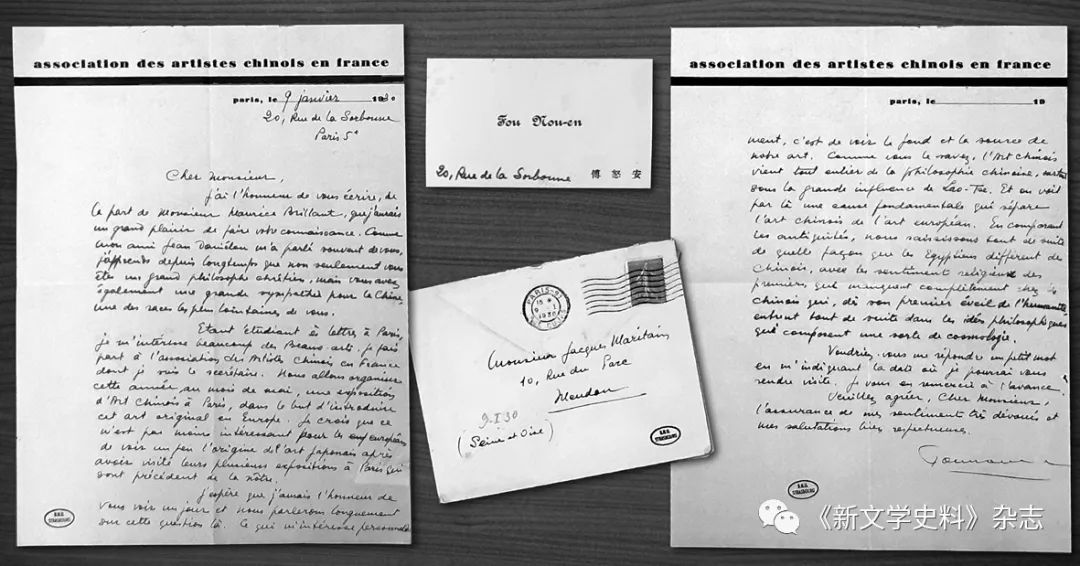 association des artistes chinois en france
paris, le 9 janvier 1930
20, Rue de la Sorbonne
Paris 5e
Cher Monsieur,
J'ai l'honneur de vous écrire, de
la part de Monsieur Maurice Brillant, que j'aurais
un grand plaisir de faire votre connaissance. Comme
mon ami Jean Daniélou m'a parlé souvent de vous,
j'apprends depuis longtemps que non seulement vous
êtes un grand philosophe chrétien, mais vous avez
également une grande sympathie pour la Chine,
une des races les plus lointaines de vous.
Etant étudiant ès lettre à Paris,
je m'intéresse beaucoup des Beaux-arts. Je fais
part à l'association des Artistes Chinois en France
dont je suis le secrétaire. Nous allons organiser
cette année au mois de mai, une exposition
d'Art Chinois à Paris, dans le but d'introduire
cet art original en Europe. Je crois que ce
n'est pas moins intéressant pour les européens
de voir un peu l'origine de l'art japonais après
avoir visité leurs plusieurs expositions à Paris qui
sont précédent de la nôtre.
J'espère que j'aurais l'honneur de
vous voir un jour et nous parlerons longuement
sur cette question là. Ce qui m'intéresse personnelle
B.N.U.
STRASBOURG
Fou Nou-en
20, Rue de la Sorbonne 傅怒安
PARIS
15
9 - 1
1930
Monsieur Jacques Maritain
10, Rue du Parc
Meudon
9.I.30
(Seine et Oise)
B.N.U.
STRASBOURG
association des artistes chinois en france
paris, le 19
ment, c'est de voir le fond et la source de
notre art. Comme vous le savez, l'Art Chinois
vient tout entier de la philosophie chinoise, surtout
sous la grande influence de Lao-Tse. Et on voit
par là une cause fondamentale qui sépare
l'art chinois de l'art européen. En comparant
les antiquités, nous saisissons tout de suite
de quelle façon que les Egyptiens différent de
Chinois, avec les sentiments religieux des
premiers, qui manquent complètement chez les
Chinois qui, dès son premier éveil de l'humanité
entrent tout de suite dans les idées philosophiques
qui composent une sorte de cosmologie.
Voudriez-vous me répondre un petit mot
en m'indiquant la date où je pourrai vous
rendre visite. Je vous en remercie à l'avance.
Veuillez agréer, Cher Monsieur,
l'assurance de mes sentiments très dévoués et
mes salutations bien respectueuses.
B.N.U.
STRASBOURG
《新文学史料》杂志